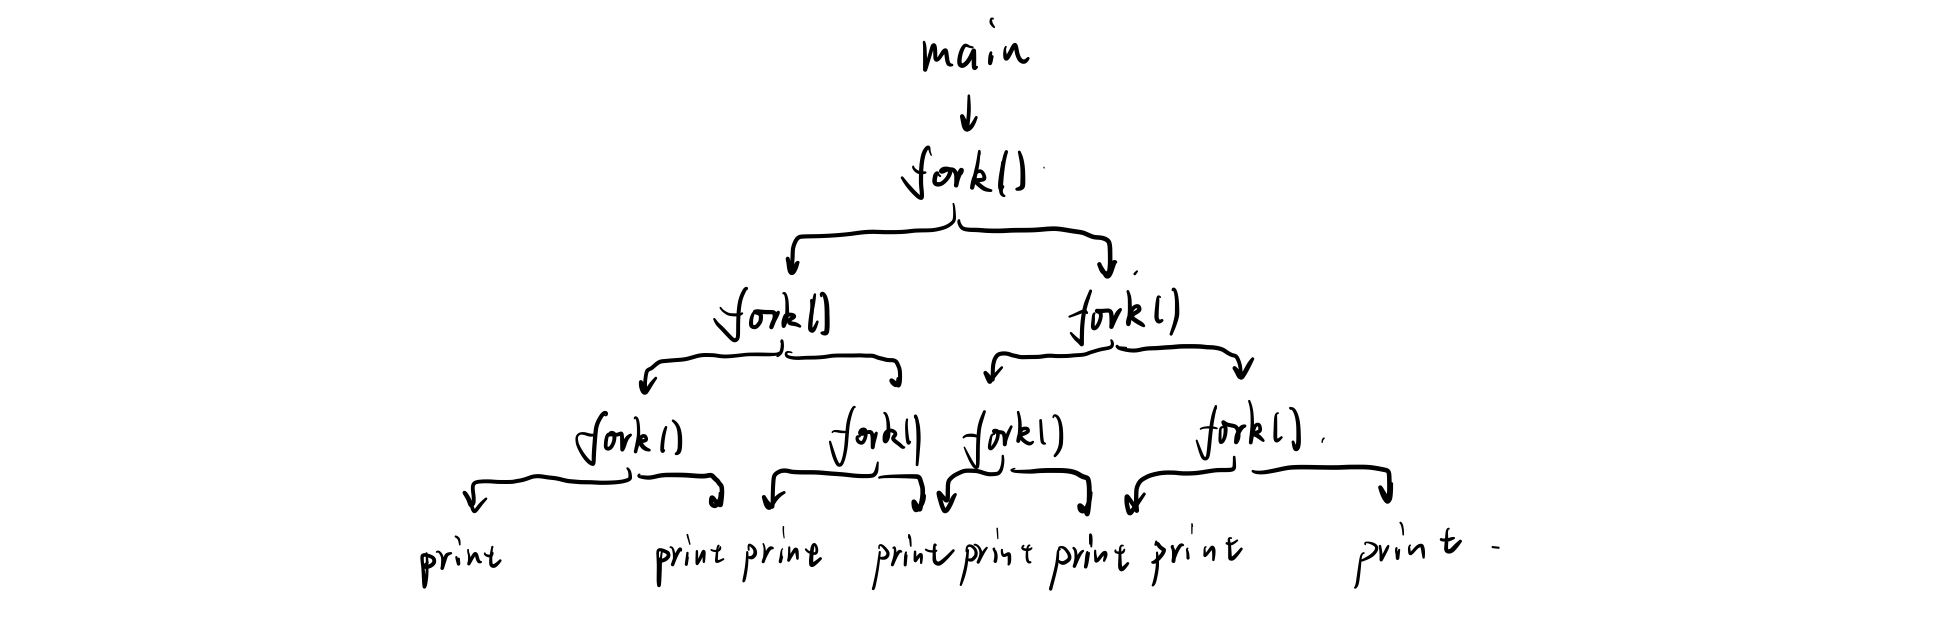 main
fork()
fork() fork()
fork() fork() fork() fork()
print print print print print print print print